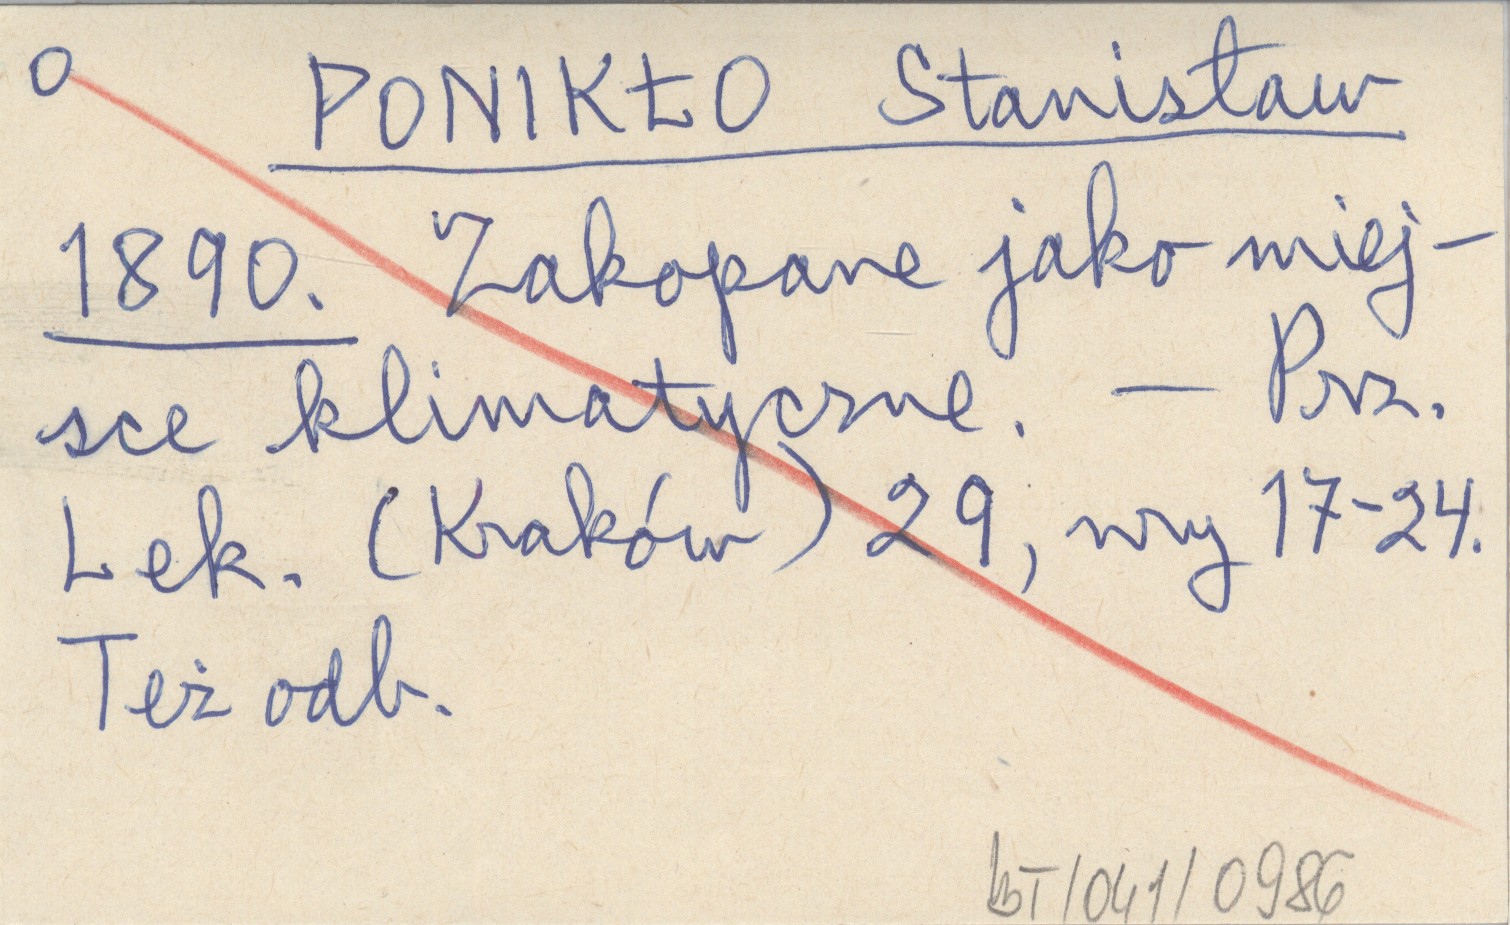 O PONIKŁO Stanisław
1890. Zakopane jako miej-
sce klimatyczne. — Prz.
Lek. (Kraków) 29, nry 17-24.
Też odb.
BT/041/0986